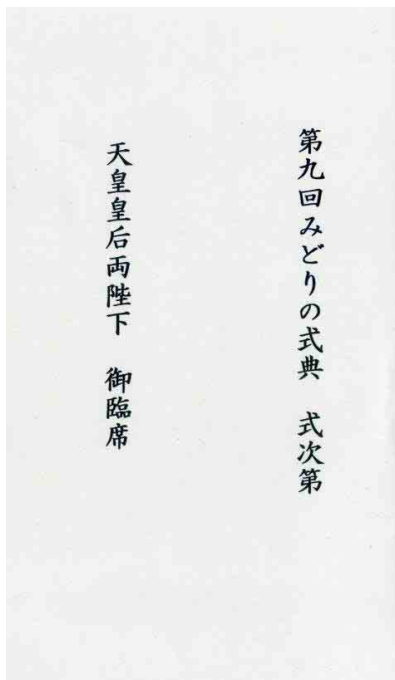 第九回みどりの式典　式次第
天皇皇后両陛下　御臨席